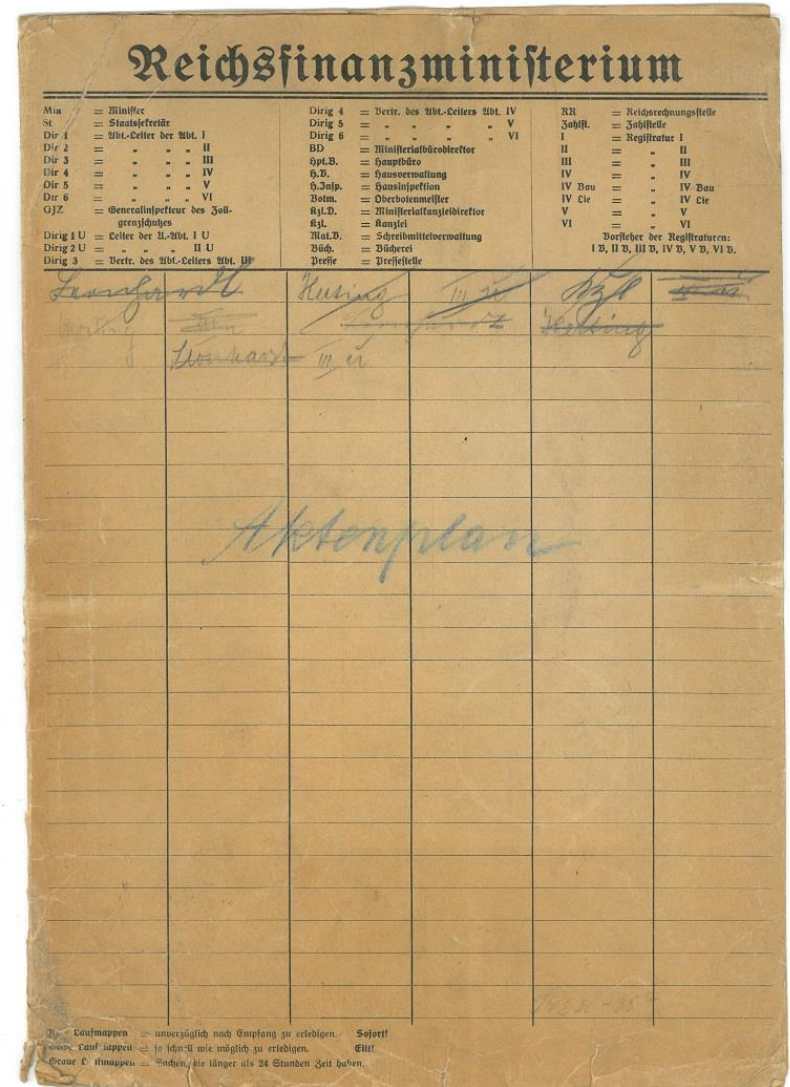 Reichsfinanzministerium
Min = Minister
St = Staatssekretär
Dir 1 = Abt.-Leiter der Abt. I
Dir 2 = " " " II
Dir 3 = " " " III
Dir 4 = " " " IV
Dir 5 = " " " V
Dir 6 = " " " VI
GJZ = Generalinspekteur des Zoll-
grenzschutzes
Dirig 1 U = Leiter der U.-Abt. I U
Dirig 2 U = " " " II U
Dirig 3 = Vertr. des Abt.-Leiters Abt. III
Dirig 4 = Vertr. des Abt.-Leiters Abt. IV
Dirig 5 = " " " " V
Dirig 6 = " " " " VI
BD = Ministerialbürodirektor
Hpt.B. = Hauptbüro
H.V. = Hausverwaltung
H.Insp. = Hausinspektion
Botm. = Oberbotenmeister
Kzl.D. = Ministerialkanzleidirektor
Kzl. = Kanzlei
Mat.V. = Schreibmittelverwaltung
Büch. = Bücherei
Presse = Pressestelle
RR = Reichsrechnungsstelle
Zahlst. = Zahlstelle
I = Registratur I
II = " II
III = " III
IV = " IV
IV Bau = " IV Bau
IV Lie = " IV Lie
V = " V
VI = " VI
Vorsteher der Registraturen:
I V, II V, III V, IV V, V V, VI V.
Leonhardt Heising Kzl
Heising
Leonhardt III
Aktenplan
Laufmappen = unverzüglich nach Empfang zu erledigen. Sofort!
= so schnell wie möglich zu erledigen. Eilt!
Graue Laufmappen = Sachen, die länger als 24 Stunden Zeit haben.